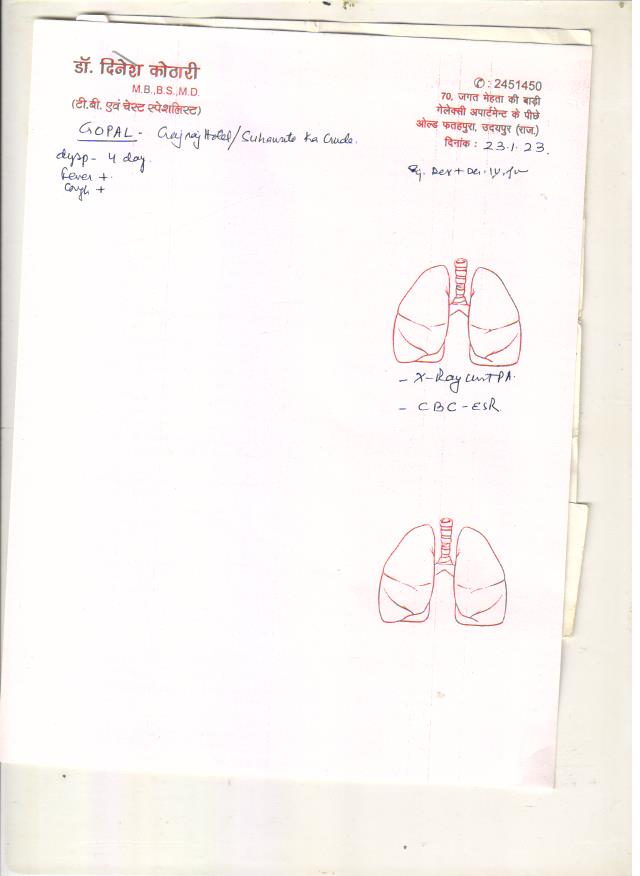 डॉ. दिनेश कोठारी
M.B.,B.S.,M.D.
(टी.बी. एवं चेस्ट स्पेशलिस्ट)
✆ : 2451450
70, जगत मेहता की बाड़ी
गेलेक्सी अपार्टमेन्ट के पीछे
ओल्ड फतहपुरा, उदयपुर (राज.)
दिनांक : 23.1.23.
GOPAL - Gajraj Hotel/
dysp - 4 day.
Fever +.
Cough +
- X-Ray PA.
- CBC - ESR